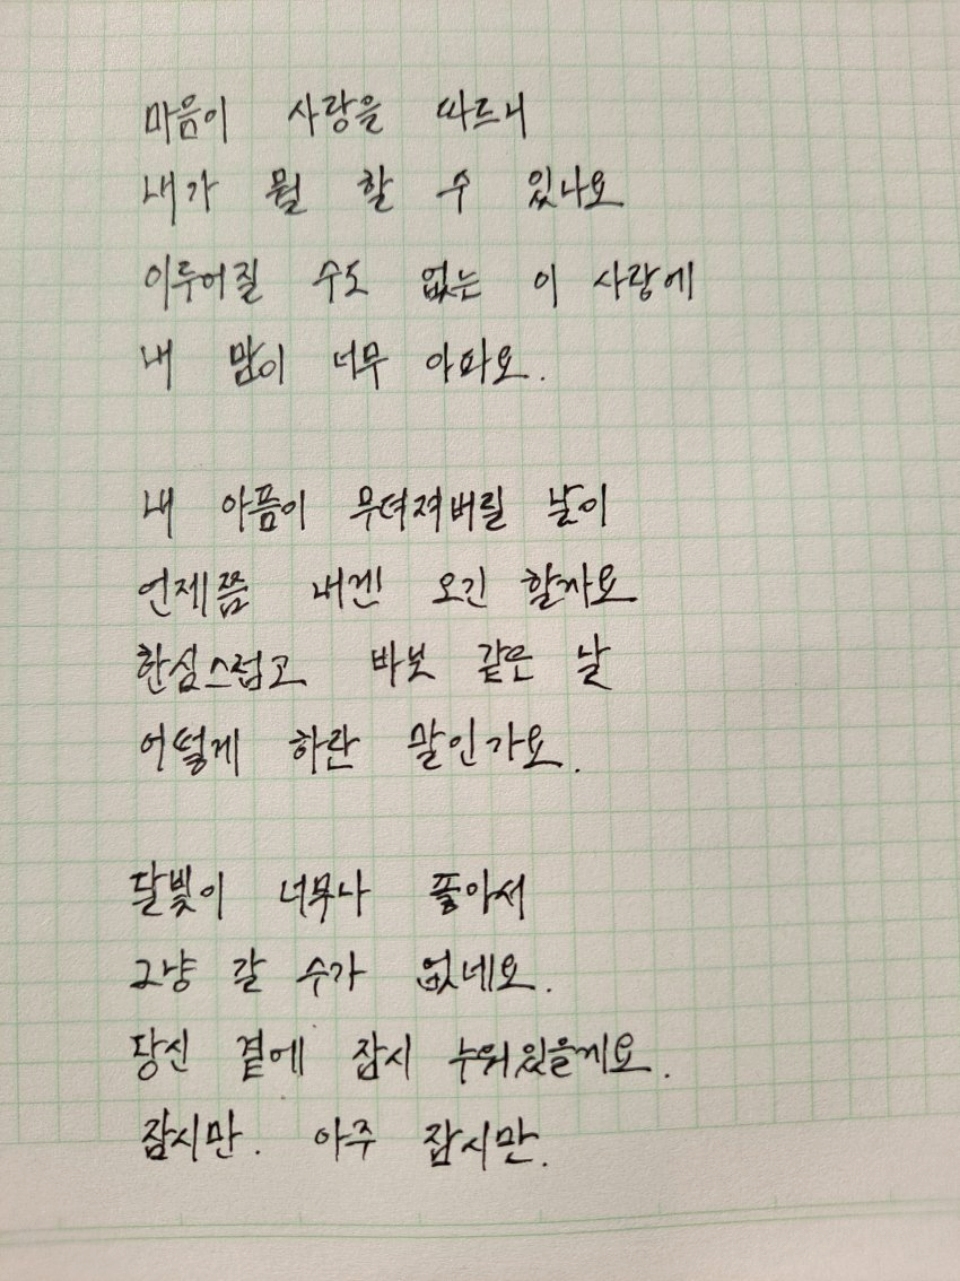 마음이 사랑을 따르니
내가 뭘 할 수 있나요
이루어질 수도 없는 이 사랑에
내 맘이 너무 아파요.
내 아픔이 무뎌져버릴 날이
언제쯤 내겐 오긴 할까요
한심스럽고 바보 같은 날
어떻게 하란 말인가요.
달빛이 너무나 좋아서
그냥 갈 수가 없네요.
당신 곁에 잠시 누워있을게요.
잠시만. 아주 잠시만.